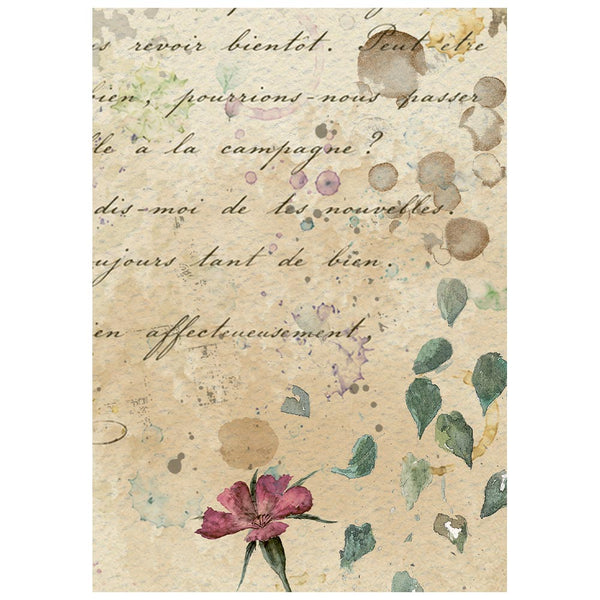 s revoir bientôt. Peut-être
bien, pourrions-nous passer
le à la campagne ?
dis-moi de tes nouvelles.
ujours tant de bien.
en affectueusement,